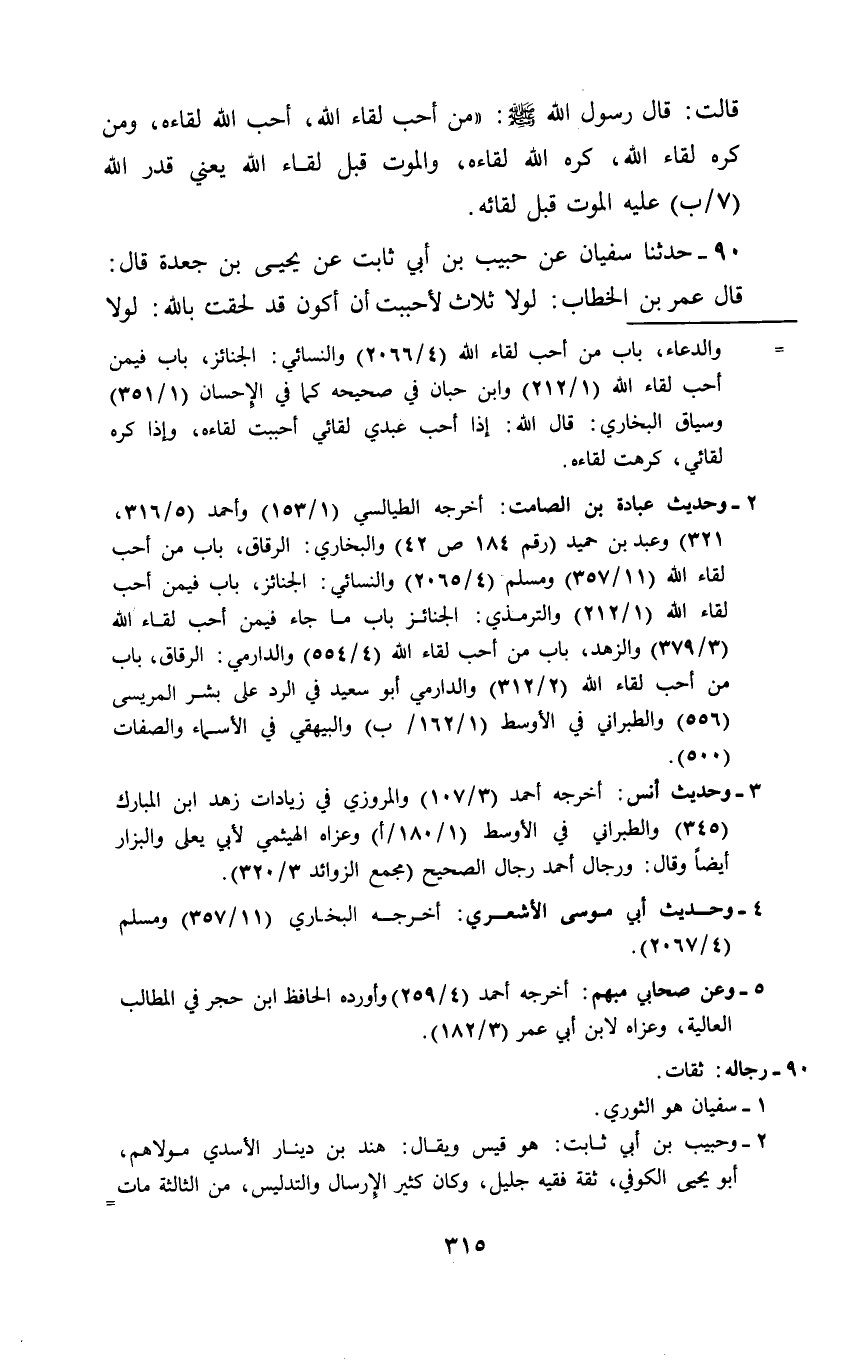 قالت: قال رسول الله ﷺ: «من أحب لقاء الله، أحب الله لقاءه، ومن
كره لقاء الله، كره الله لقاءه، والموت قبل لقاء الله يعني قدر الله
(٧/ب) عليه الموت قبل لقائه.
٩٠ - حدثنا سفيان عن حبيب بن أبي ثابت عن يحيى بن جعدة قال:
قال عمر بن الخطاب: لولا ثلاث لأحببت أن أكون قد لحقت بالله: لولا
= والدعاء، باب من أحب لقاء الله (٢٠٦٦/٤) والنسائي: الجنائز، باب فيمن
أحب لقاء الله (٢١٢/١) وابن حبان في صحيحه كما في الإحسان (٣٥١/١)
وسياق البخاري: قال الله: إذا أحب عبدي لقائي أحببت لقاءه، وإذا كره
لقائي، كرهت لقاءه.
٢ - وحديث عبادة بن الصامت: أخرجه الطيالسي (١٥٣/١) وأحمد (٣١٦/٥،
٣٢١) وعبد بن حميد (رقم ١٨٤ ص ٤٢) والبخاري: الرقاق، باب من أحب
لقاء الله (٣٥٧/١١) ومسلم (٢٠٦٥/٤) والنسائي: الجنائز، باب فيمن أحب
لقاء الله (٢١٢/١) والترمذي: الجنائز باب ما جاء فيمن أحب لقاء الله
(٣٧٩/٣) والزهد، باب من أحب لقاء الله (٥٥٤/٤) والدارمي: الرقاق، باب
من أحب لقاء الله (٣١٢/٢) والدارمي أبو سعيد في الرد على بشر المريسى
(٥٥٦) والطبراني في الأوسط (١٦٢/١/ ب) والبيهقي في الأسماء والصفات
(٥٠٠).
٣ - وحديث أنس: أخرجه أحمد (١٠٧/٣) والمروزي في زيادات زهد ابن المبارك
(٣٤٥) والطبراني في الأوسط (١٨٠/١/أ) وعزاه الهيثمي لأبي يعلى والبزار
أيضاً وقال: ورجال أحمد رجال الصحيح (مجمع الزوائد ٣٢٠/٣).
٤ - وحديث أبي موسى الأشعري: أخرجه البخاري (٣٥٧/١١) ومسلم
(٢٠٦٧/٤).
٥ - وعن صحابي مبهم: أخرجه أحمد (٢٥٩/٤) وأورده الحافظ ابن حجر في المطالب
العالية، وعزاه لابن أبي عمر (١٨٢/٣).
٩٠ - رجاله: ثقات.
١ - سفيان هو الثوري.
٢ - وحبيب بن أبي ثابت: هو قيس ويقال: هند بن دينار الأسدي مولاهم،
أبو يحيى الكوفي، ثقة فقيه جليل، وكان كثير الإرسال والتدليس، من الثالثة مات =
٣١٥